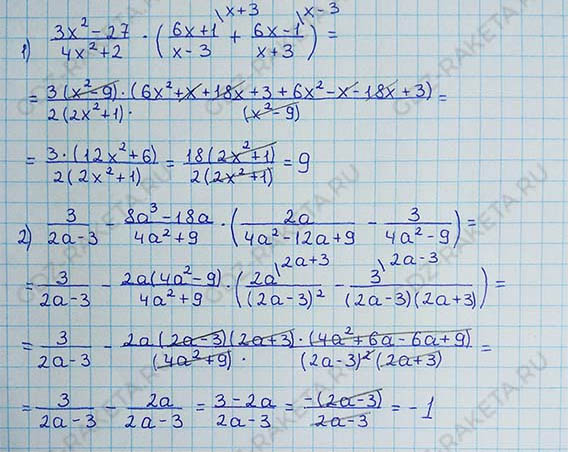 1) (3x²-27)/(4x²+2) · ((6x+1)/(x-3) \x+3 + (6x-1)/(x+3) \x-3) =
= (3(x²-9)·(6x²+x+18x+3+6x²-x-18x+3))/(2(2x²+1)·(x²-9)) =
= (3·(12x²+6))/(2(2x²+1)) = (18(2x²+1))/(2(2x²+1)) = 9
2) 3/(2a-3) - (8a³-18a)/(4a²+9) · (2a/(4a²-12a+9) - 3/(4a²-9)) =
= 3/(2a-3) - (2a(4a²-9))/(4a²+9) · (2a/(2a-3)² \2a+3 - 3/((2a-3)(2a+3)) \2a-3) =
= 3/(2a-3) - (2a(2a-3)(2a+3)·(4a²+6a-6a+9))/((4a²+9)·(2a-3)²(2a+3)) =
= 3/(2a-3) - 2a/(2a-3) = (3-2a)/(2a-3) = (-(2a-3))/(2a-3) = -1
GDZ-RAKETA.RU